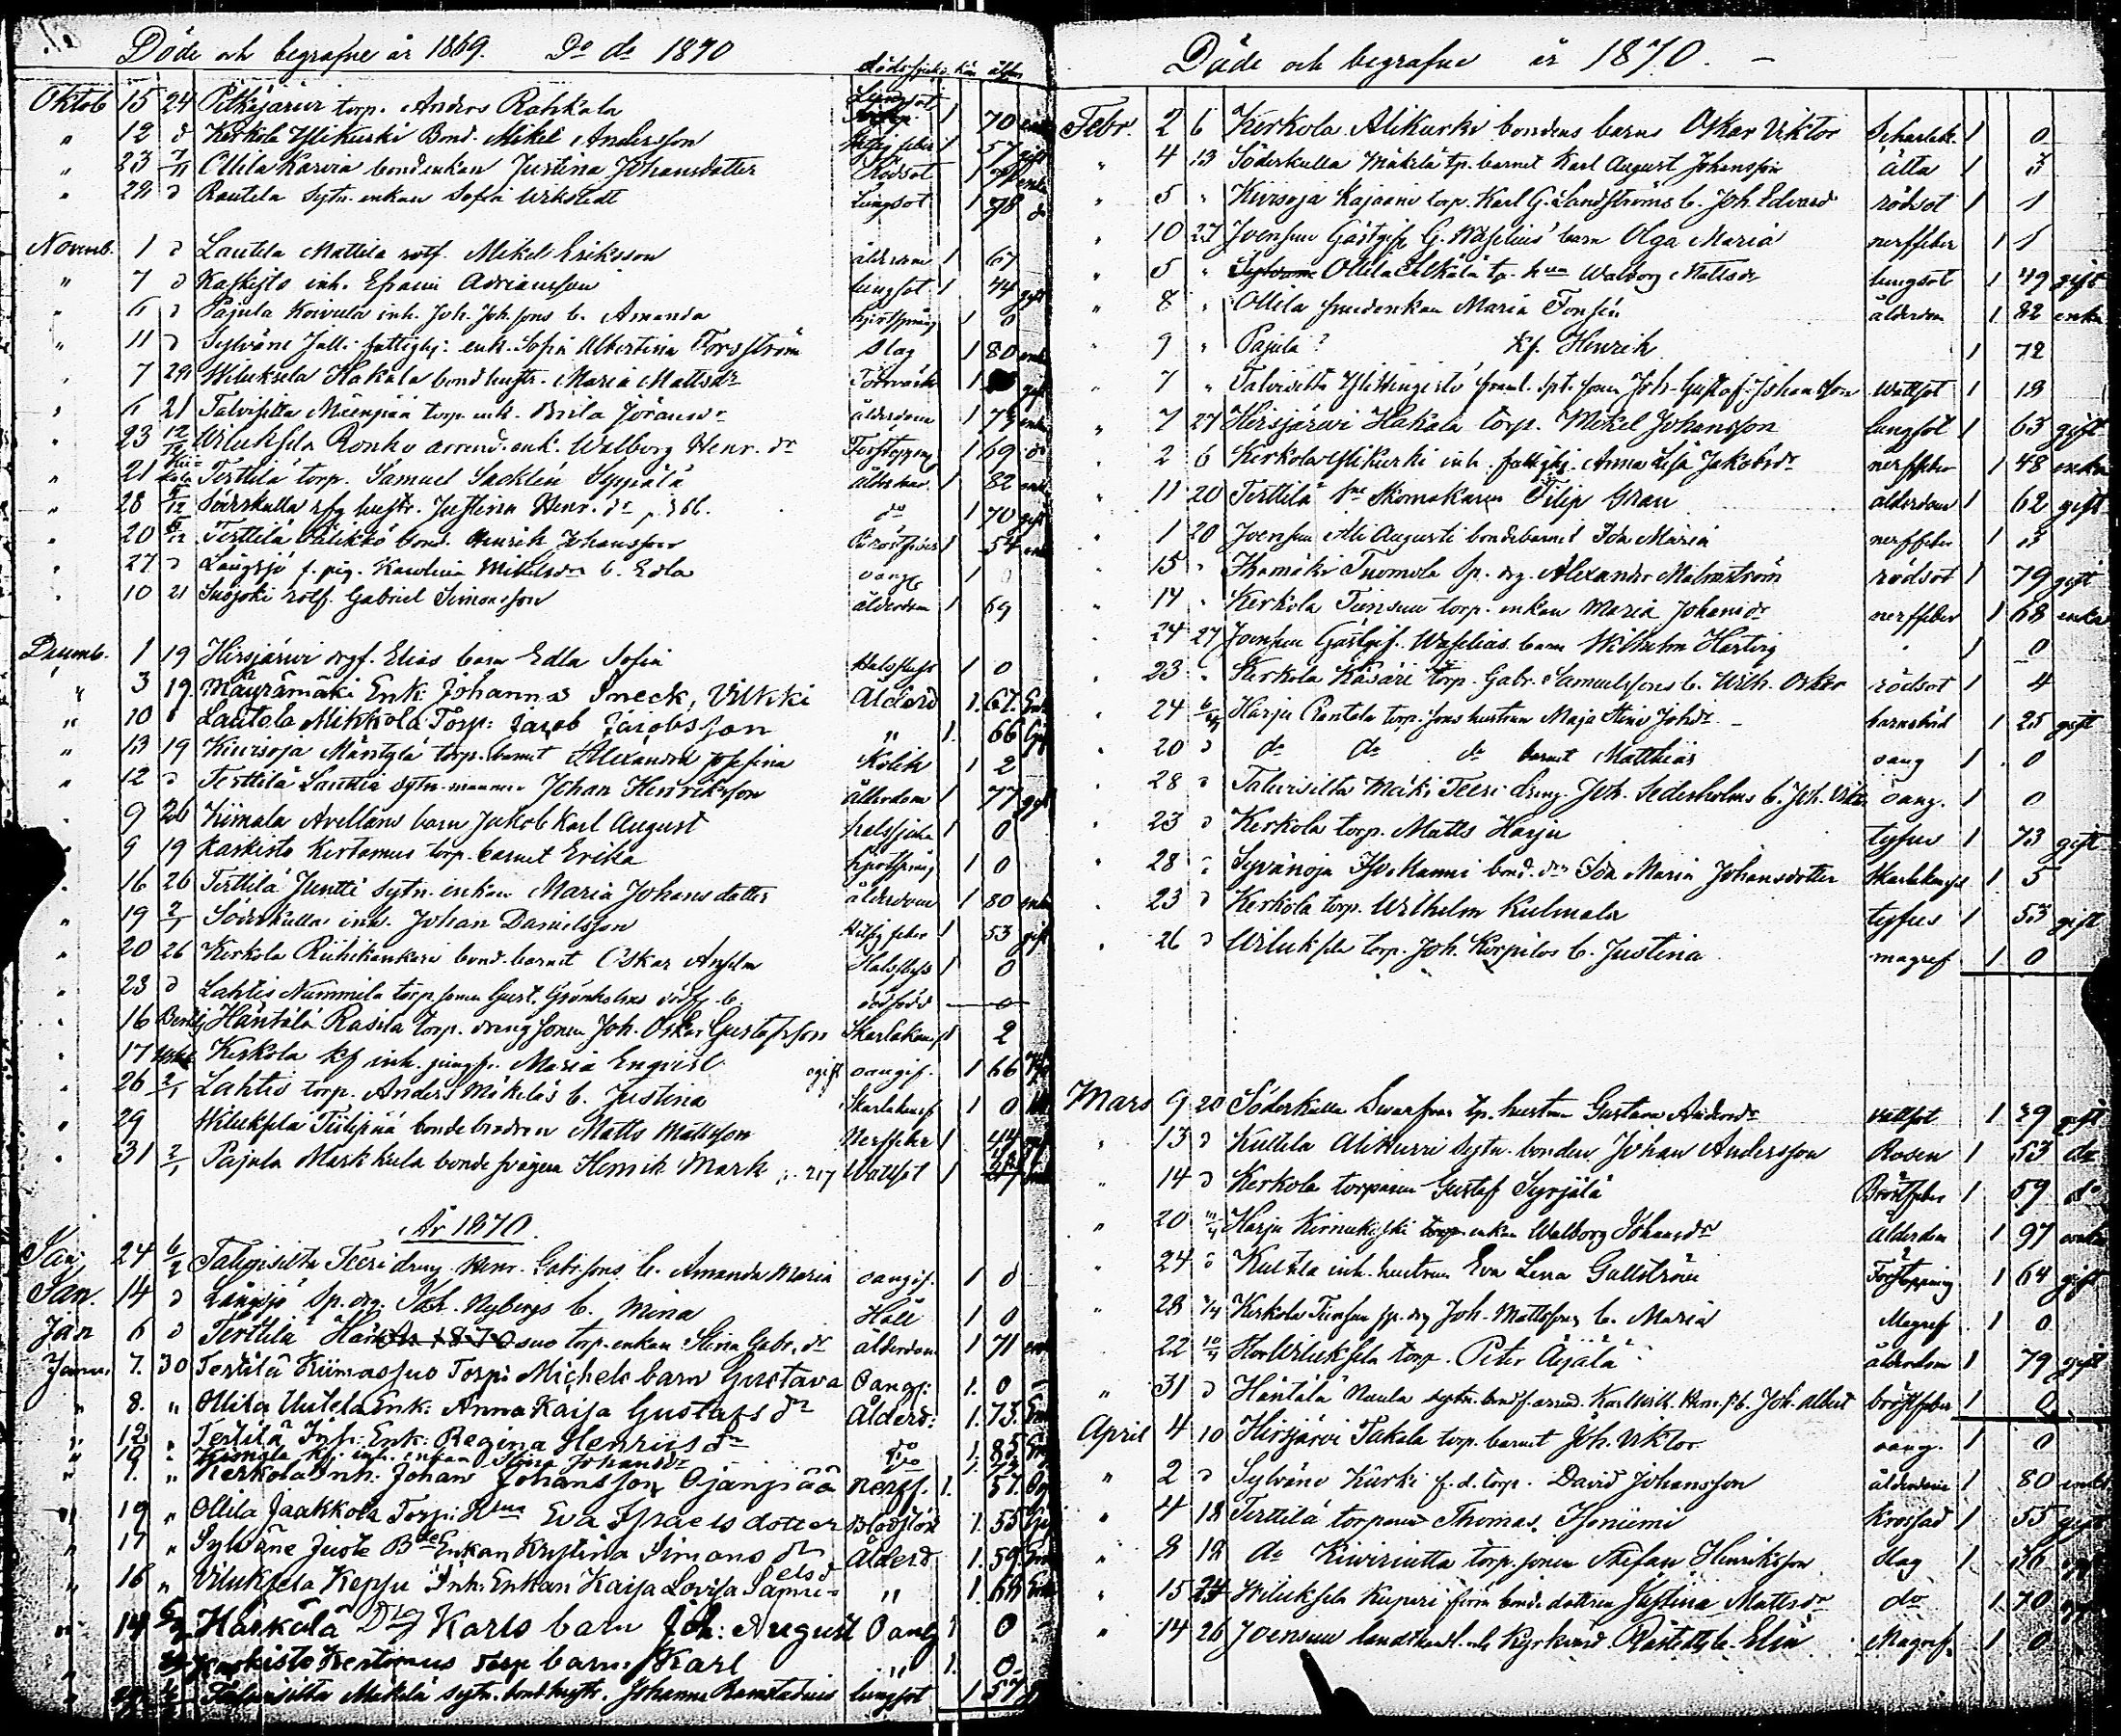 Döde och begrafne år 1869. Do do 1870
dödssjukd. kön ålder
Oktob 15 24 Pitkäjärvi torp. Anders Rahkala Lungsot 1 70
" 12 d Kerkola Ylikurki Bond. Mikel Andersson feber 1 57 gift
" 23 7/11 Ollila Karvia bondenkan Justina Johansdotter Rödsot 1 enka
" 28 d Rautela Sytn. enkan Sofia Wikstedt Lungsot 1 78 d
Novemb. 1 d Lautela Mattila rotf. Mikel Eriksson ålderdom 1 67
" 7 d Kaskisto inh. Efraim Adriansson lungsot 1 74 gift
" 6 d Pajula Koivula inh. Joh. Joh. sons b. Amanda 1 0
" 11 d Sylväne Jalli fattighj. enk. Sofia Albertina Forsström Slag 1 80 enka
" 7 29 Wiluksela Hakala bond hustr. Maria Mattsdr 1 gift
" 6 21 Talvisilta Mäenpää torp. enk. Brita Göransdr ålderdom 1 75 enka
" 23 12/12 Wiluksela Ronko arrend. enk. Walborg Henr. dr Förstoppning 1 69 do
" 21 Terttilä torp. Samuel Sacklén Seppälä 1 82
" 28 5/12 Söderkulla hustr. Justina Henr. dr p. 366. do 1 70 gift
" 20 5/12 Terttilä bond. Henrik Johansson 1 54
" 27 d Långsjö f. pig. Karolina Mikelsdrs b. Edla oang 1 0
" 10 21 Suojoki rotf. Gabriel Simonsson ålderdom 1 69
Decemb. 1 19 Hirsjärvi drgf. Elias barn Edla Sofia Halsfluss 1 0
" 3 19 Mäyrämäki Enk: Johannas Ineck, Vilkki Ålderd 1. 67.
" 10 Lautela Mikkola Torp: Jacob Jacobsson " 1. 66
" 13 19 Kuusoja Mäntylä torp. barnet Alexandra Josefina Kolik 1 2
" 12 d Terttilä Lauttia sytn. mannen Johan Henriksson ålderdom 1 77 gift
" 9 26 Kiimala Avellans barn Jakob Karl August halssjuka 1 0
" 9 19 Kaskisto Kertamus torp. barnet Erika 1 0
" 16 26 Terttilä Juntti Sytn. enkan Maria Johansdotter ålderdom 1 80 enka
" 19 2/1 Söderkulla inh. Johan Danielsson feber 1 53 gift
" 20 26 Kerkola Riihikankare bond. barnet Oskar Anselm Halsfluss 1 0
" 23 d Lahtis Nummila torp. sonen Gust. Grönholms dödf. b. dödfödd 0
" 16 Häntälä Rasila torp. dreng sonen Joh. Oskar Gustafsson Skarlakansf 2
" 17 Kerkola kf inh. jungfr. Maria Enqvist ogift oangif. 1 66
" 26 2/1 Lahtis torp. Anders Mäkeläs b. Justina Skarlakansf 1 0
" 29 Wiluksela Tiilipää bonde brodren Matts Mattsson Nerffeber 1 44
" 31 2/1 Pajula Markkula bonde svågern Henrik Mark p. 217 Wattsot 1
År 1870.
Jan. 24 6/2 Talvisilta Teeri dreng Henr. Gabr. sons b. Amanda Maria oangif. 1 0
Jan. 14 d Långsjö Sp. drg. Joh. Nybergs b. Mina Håll 1 0
Jan 6 d Terttilä suo torp. enkan Stina Gabr. dr ålderdom 1 71
Janu. 7. 30 Terttilä Kiimassuo Torp: Michels barn Gustava Oangf: 1. 0
" 8. " Ollila Uutela Enk: Anna Kaisa Gustafs dr Ålderd: 1. 73.
" 12 " Terttilä Inh: Enk: Regina Henrics dr do 1. 85
" 19 " Kiimala kf. inh. enkan Stina Johansdr do 1.
" 9. " Kerkola Inh. Johan Johansson Ojanpää nerff. 1. 57.
" 19 " Ollila Jaakkola Torp: Hua Eva Israelsdotter Blodstört 1. 55
" 17 " Sylväne Juste Bde Enkan Kristina Simons dr Ålderd 1. 59.
" 16 " Viluksela Keppu Inh: Enkan Kaisa Lovisa Samuelsd " 1. 68
" 14 Härkälä Dreg Karls barn Joh: August Oang 1 0
Kaskisto Kertamus Torp barn: Karl " 1. 0
Talvisilta Mäkelä sytn. bond hustr. Johanna Ramstadius lungsot 1 57
Döde och begrafne år 1870.
Febr. 2 6 Kerkola Alikurki bondens barn Oskar Viktor Scharlak. 1 0
" 4 13 Söderkulla Mäkilä tp. barnet Karl August Johansson ålta 1
" 5 " Kuusoja Kajaani torp. Karl G. Landströms b. Joh. Edvard rödsot 1 1
" 10 27 Joensuu Gästgif. G. Wäselius barn Olga Maria nerffeber 1 1
" 5 " Ollila Ylikälä tp. hua Walborg Mattsdr lungsot 1 49 gift
" 8 " Ollila smedenkan Maria Tonsén ålderdom 1 82 enka
" 9 " Pajula? kf. Henrik 1 72
" 7 " Talvisilta sonen Joh. Gustaf Johansson Wattsot 1 18
" 7 27 Hirsjärvi Hakala torp. Mikel Johansson lungsot 1 63 gift
" 2 6 Kerkola Ylikurki inh. fattighj. Anna Lisa Jakobsdr nerffeber 1 48 enka
" 11 20 Terttilä Skomakaren Filip Gran ålderdom 1 62 gift
" 1 20 Joensuu Ali Augusti bondebarnet Ida Maria nerffeber 1
" 15 " Ihamäki Tuomola Sp. drg. Alexander Malmström rödsot 1 79 gift
" 14 " Kerkola Tiensuu torp. enkan Maria Johansdr nerffeber 1 68 enka
" 24 27 Joensuu Gästgif. Waselius barn Wilhelm Hartvig " 1 0
" 23 " Kerkola Käsäri torp. Gabr. Samuelssons b. Wilh. Oskar rödsot 1 4
" 24 Harju Rantala torp. sons hustrun Maja Stina Johdr barnsbörd 1 25 gift
" 20 d do do do barnet Matthias oang 1 0
" 28 d Talvisilta Mäki Teeri dreng. Joh. Sederholms b. Joh. Vikt. oang. 1 0
" 23 d Kerkola torp. Matts Harju tyfus 1 73 gift
" 28 " Syvänoja Iso Manni bond. dr Ida Maria Johansdotter Skarlakansf 1 5
" 23 d Kerkola torp. Wilhelm Kulmala tyfus 1 53 gift
" 26 d Wiluksela torp. Joh. Korpilos b. Justina magref 1 0
Mars 9 20 Söderkulla tp. hustrun Gustava Andersdr vattsot 1 39 gift
" 13 d Kultila Alikurri Sytn. bonden Johan Andersson Rosen 1 53 do
" 14 d Kerkola torparen Gustaf Syrjälä Bröstfeber 1 59 do
" 20 Harju enkan Walborg Johansdr Ålderdom 1 97 enka
" 24 d Kultila inh. hustrun Eva Lena Gallström Förstoppning 1 64 gift
" 28 3/4 Kerkola Tiensuu sp. drg Joh. Mattssons b. Maria Magref 1 0
22 10/4 Wiluksela torp. Peter Äijälä ålderdom 1 79 gift
" 31 d Häntälä Naula sytn. Karl Wilh. Henr. s. b. Joh. Albert bröstfeber 1 0
April 4 10 Hirsjärvi Takala torp. barnet Joh. Viktor oang. 1 0
" 2 d Sylväne Kurki f. d. torp. David Johansson ålderdom 1 80 enkl.
" 4 18 Terttilä torparen Thomas Isoniemi 1 55 gift
" 8 12 do Kivirinta torp. sonen Stefan Henriksson slag 1
" 15 24 Wiluksela Kuperi förra bonde dottren Justina Mattsdr do 1 70
" 14 26 Joensuu landthandl. och Kyrkvärd Rästedts b. Elin Magref. 1 0